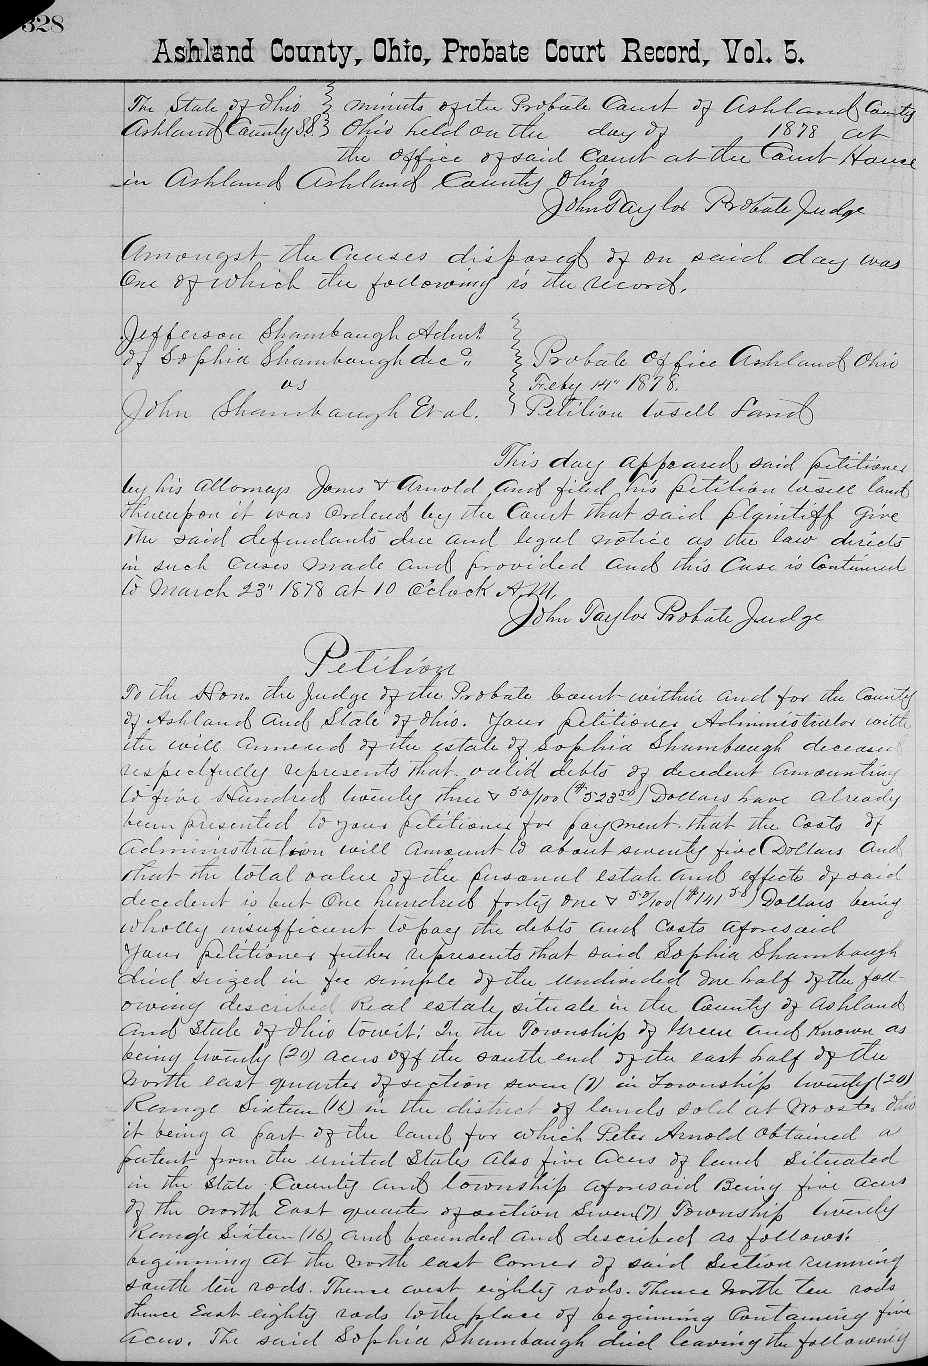 328
Ashland County, Ohio, Probate Court Record, Vol. 5.
The State of Ohio } minuts of the Probate Court of Ashland County
Ashland County SS } Ohio held on the day of 1878 at
the office of said Court at the Court House
in Ashland Ashland County Ohio
John Taylor Probate Judge
Amongst the causes disposed of on said day was
One of which the following is the record.
Jefferson Shambaugh Admr
of Sophia Shambaugh dec'd
vs
John Shambaugh Et al.
Probate Office Ashland Ohio
Feby 14" 1878.
Petition to sell Land
This day appeared said petitioner
by his attorneys Jones & Arnold and filed his petition to sell land
thereupon it was ordered by the Court that said plaintiff give
the said defendants due and legal notice as the law directs
in such cases made and provided and this case is Continued
to March 23" 1878 at 10 O'clock A.M.
John Taylor Probate Judge
Petition
To the Hon. the Judge of the Probate Court within and for the County
of Ashland and State of Ohio. Your petitioner Administrator with
the will annexed of the estate of Sophia Shambaugh deceased
respectfully represents that valid debts of decedent amounting
to five Hundred twenty three & 50/100 ($523 50) Dollars have already
been presented to your petitioner for payment. that the costs of
Administration will amount to about seventy five Dollars and
that the total value of the personal estate and effects of said
decedent is but One hundred forty one & 58/100 ($141 58) Dollars being
wholly insufficient to pay the debts and costs aforesaid
Your petitioner futher represents that said Sophia Shambaugh
died seized in fee simple of the undivided one half of the foll-
owing described Real estate, situate in the County of Ashland
and State of Ohio towit: In the Township of Green and known as
being twenty (20) acres off the south end of the east half of the
North east quarter of section seven (7) in Township twenty (20)
Range Sixteen (16) in the district of lands sold at Wooster Ohio
it being a part of the land for which Peter Arnold obtained a
patent from the United States also five acres of land situated
in the State County and township aforesaid Being five acres
of the North East quarter of section Seven (7) Township twenty
Range Sixteen (16) and bounded and described as follows:
beginning at the north east corner of said Section running
south ten rods. Thence west eighty rods. Thence North ten rods
thence East eighty rods to the place of beginning Containing five
acres. The said Sophia Shambaugh died leaving the following